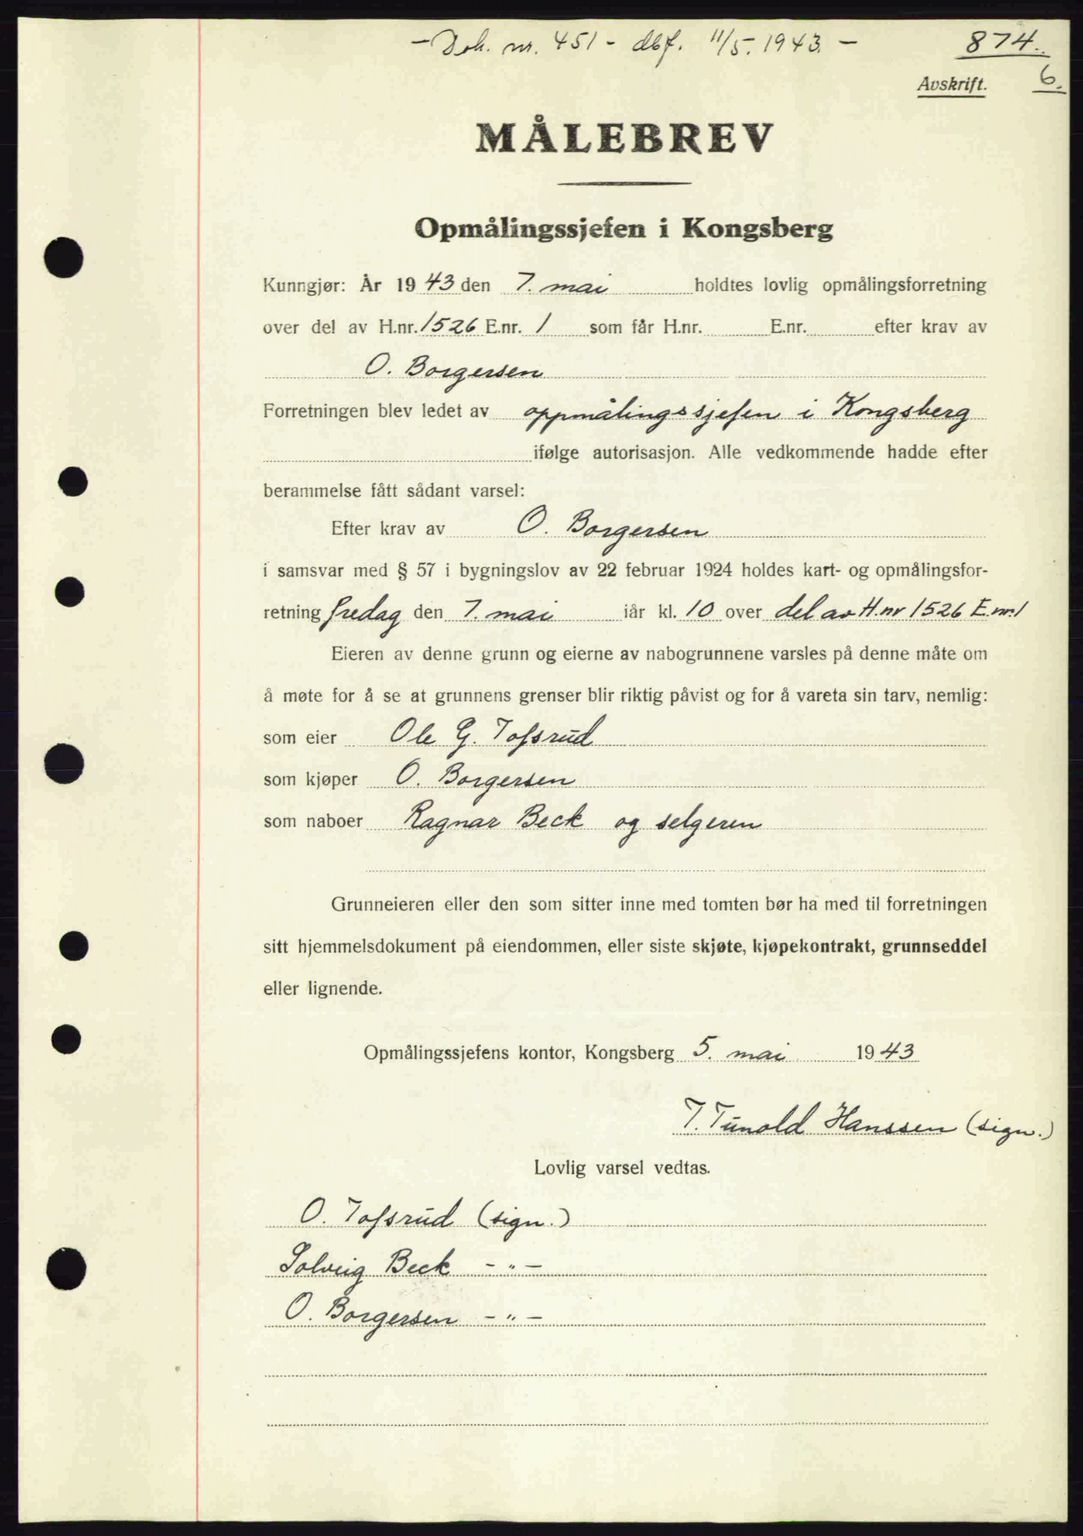 - Dok. nr. 451 - dbf. 11/5. 1943. -
874.
6.
Avskrift.
MÅLEBREV
Opmålingssjefen i Kongsberg
Kunngjør: År 1943 den 7. mai holdtes lovlig opmålingsforretning
over del av H.nr. 1526 E.nr. 1 som får H.nr. E.nr. efter krav av
O. Borgersen
Forretningen blev ledet av oppmålingssjefen i Kongsberg
ifølge autorisasjon. Alle vedkommende hadde efter
berammelse fått sådant varsel:
Efter krav av O. Borgersen
i samsvar med § 57 i bygningslov av 22 februar 1924 holdes kart- og opmålingsfor-
retning fredag den 7. mai iår kl. 10 over del av H.nr 1526 E.nr. 1
Eieren av denne grunn og eierne av nabogrunnene varsles på denne måte om
å møte for å se at grunnens grenser blir riktig påvist og for å vareta sin tarv, nemlig:
som eier Ole G. Tofsrud
som kjøper O. Borgersen
som naboer Ragnar Beck og selgeren
Grunneieren eller den som sitter inne med tomten bør ha med til forretningen
sitt hjemmelsdokument på eiendommen, eller siste skjøte, kjøpekontrakt, grunnseddel
eller lignende.
Opmålingssjefens kontor, Kongsberg 5. mai 1943
T. Tunold Hanssen (sign.)
Lovlig varsel vedtas.
O. Tofsrud (sign.)
Solveig Beck - " -
O. Borgersen - " -